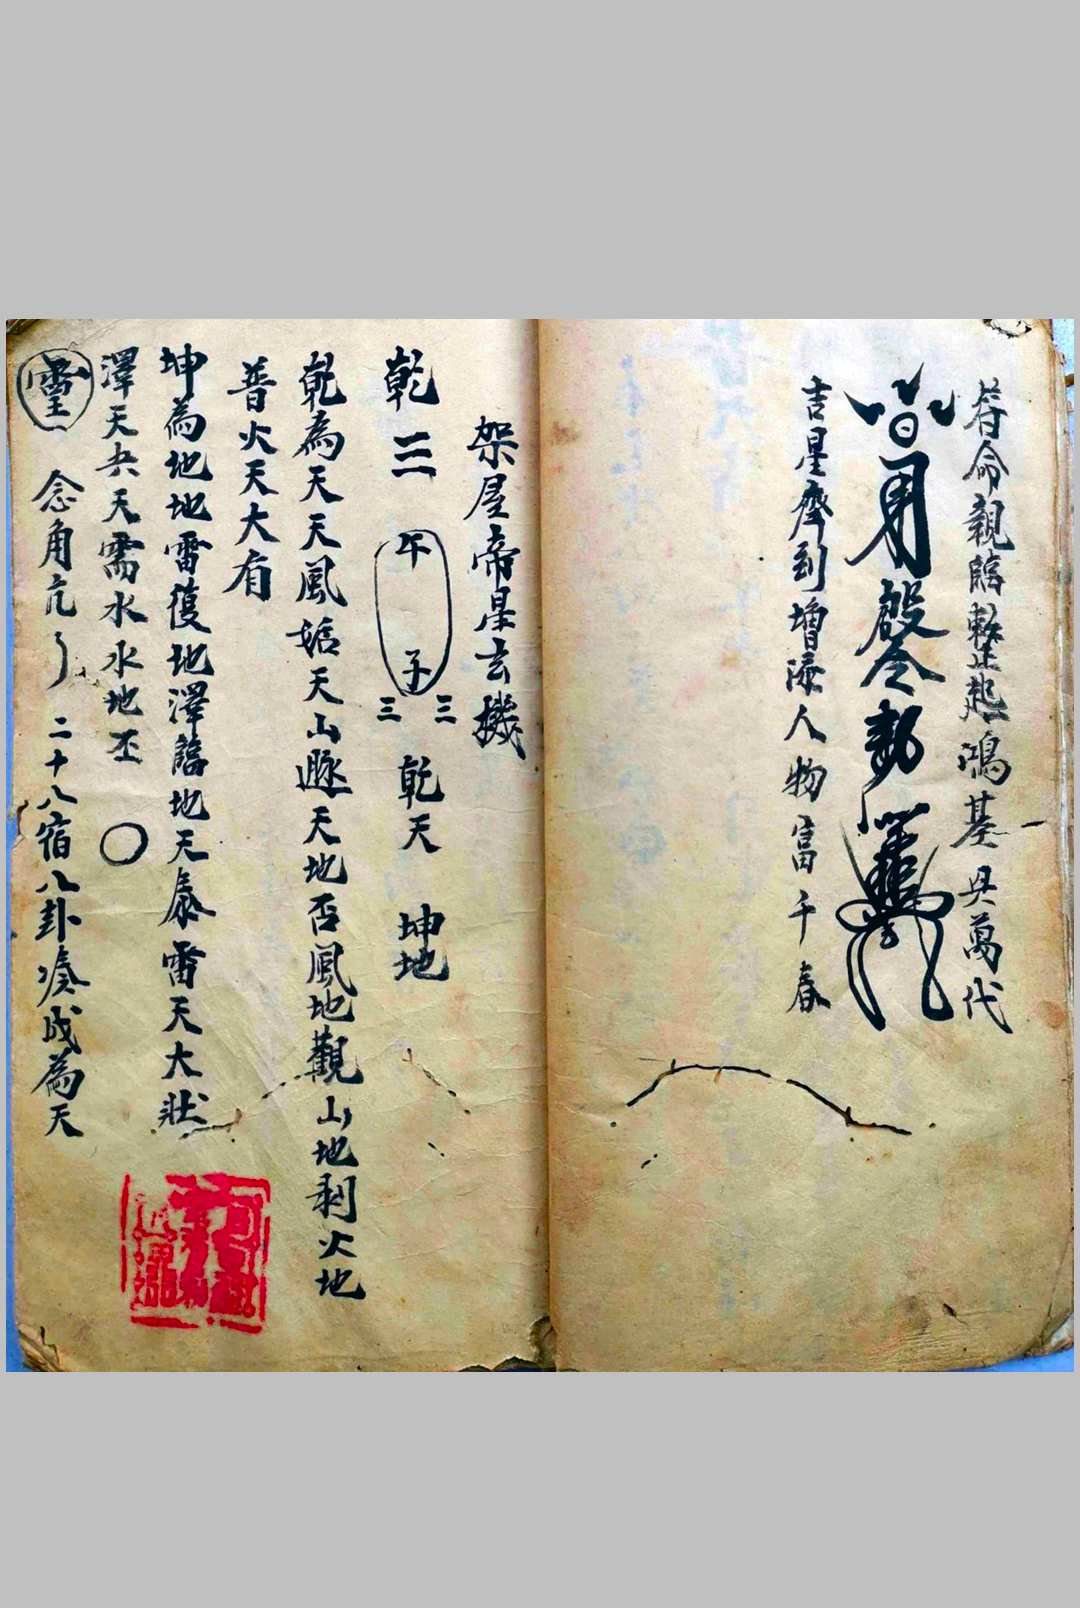 符命親臨整起鴻基興萬代
吉星齊到增添人物富千春
架屋帝星玄機
乾三 午 子 三 三 乾天 坤地
乾為天天風姤天山遯天地否風地觀山地剥火地
普火天大有
坤為地地雷復地澤臨地天泰雷天大壯
澤天夬天需水水地丕〇
靈 念角亢 二十八宿八卦湊成為天